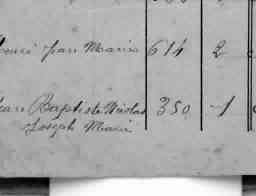 Henri Jean Marie 614 2
Jean Baptiste Nicolas 350 1
Joseph Marie